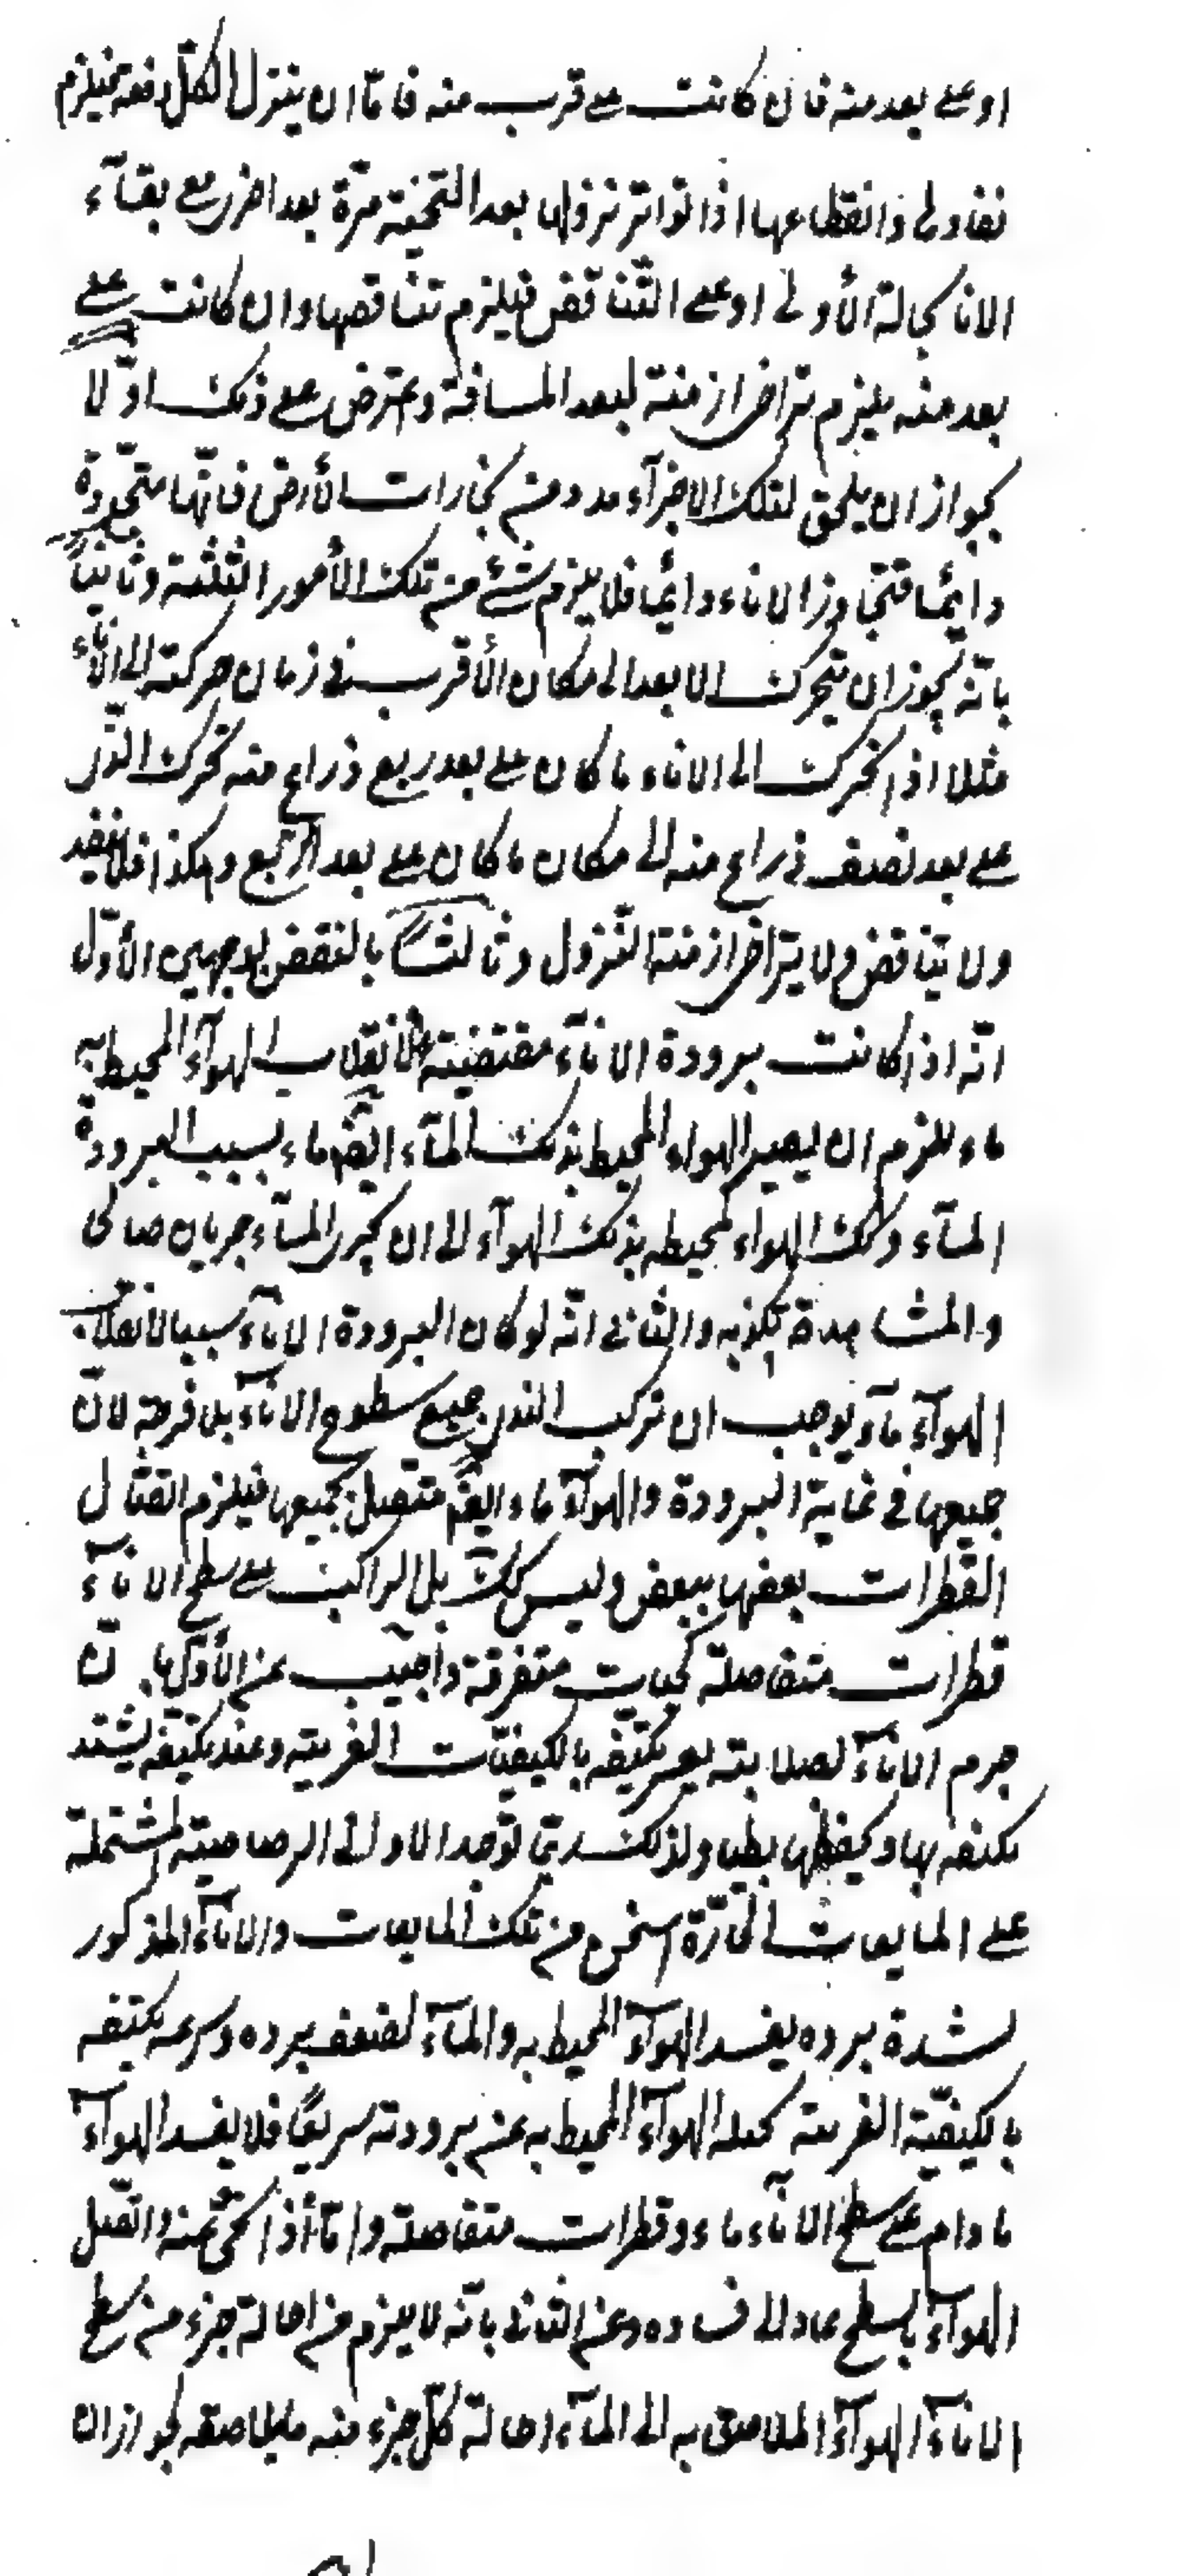 او على بعد منه فان كانت على قرب منه فامّا ان ينزل الكلّ دفعة فيلزم
نفادها وانقطاعها اذا تواتر نزولها بعد التنحية مرّة بعد اخرى مع بقآء
الانا بحالة الأولى او على التّناقض فيلزم تناقصها وان كانت على
بعد منه يلزم تراخى ازمنة لبعد المسافة واعترض على ذلك اوّلا
بجواز ان يلحق لتلك الاجزآء مدد من بخارات الأرض فانّها متجدّدة
دايًما فتجاوز الاناء دائما فلا يلزم شئ من تلك الأمور الثلثة وثانياً
بانّه يجوز ان يتحرك الابعد الى مكان الأقرب فى زمان حركته الى الانآء
مثلا اذا تحرك الى الاناء ما كان على بعد ربع ذراع منه تحرك الّذى
على بعد نصف ذراع منه الى مكان ما كان على بعد الرّبع وهكذا فلا ينفد
ولا يتناقض ولا يتراخى ازمنة النّزول وثالثاً بالنقض بوجهين الأوّل
انّه اذا كانت برودة الانآء مقتضية لانقلاب الهوآء المحيط به
ماء يلزم ان يصير الهواء المحيط بذلك المآء ايضا ماء بسبب البرودة
المآء وكك الهواء المحيط بذلك الهوآء الى ان يجرى المآء جريان صالحا
والمشاهدة تكذبه والثانى انّه لو كان البرودة الانآء سببا لانقلاب
الهوآء مآء يوجب ان تركب الندى جميع سطوح الانآء بلا فرجة لانّ
جميعها فى غاية البرودة والهوآء ماء ايضا متصل بجميعها فيلزم اتصال
القطرات بعضها ببعض وليس كك بل الراكب على سطح الانآء
قطرات متفاصلة كحبات متفرقة واجيب عن الأوّل بانّ
جرم الانآء لصلابته يعسر تكيّفه بالكيفيّات الغريبة وعند تكيّفه يشتد
تكيفه بها ويحفظها بطيا ولذلك ربّما توجد الاوانى الرصاصية المشتملة
على المايعات الحارّة اسخن من تلك المايعات والانآء المذكور
لشدة برده يفسد الهوآء المحيط به والمآء لضعف برده وسرعة تكيّفه
بالكيفيّة الغريبة يحيله الهوآء المحيط به عن برودته سريعًا فلا يفسد الهوآء
مادام على سطح الانآء ماء وقطرات متفاصلة وامّا اذا نحى عنه واتّصل
الهوآء بالسطح عاد الى فساده وعن الثانى بانّه لا يلزم من احالة جزء من سطح
الانآء الهوآء الملاصق به الى المآء احالة كلّ جزء منه ما يلاصقه لجواز ان